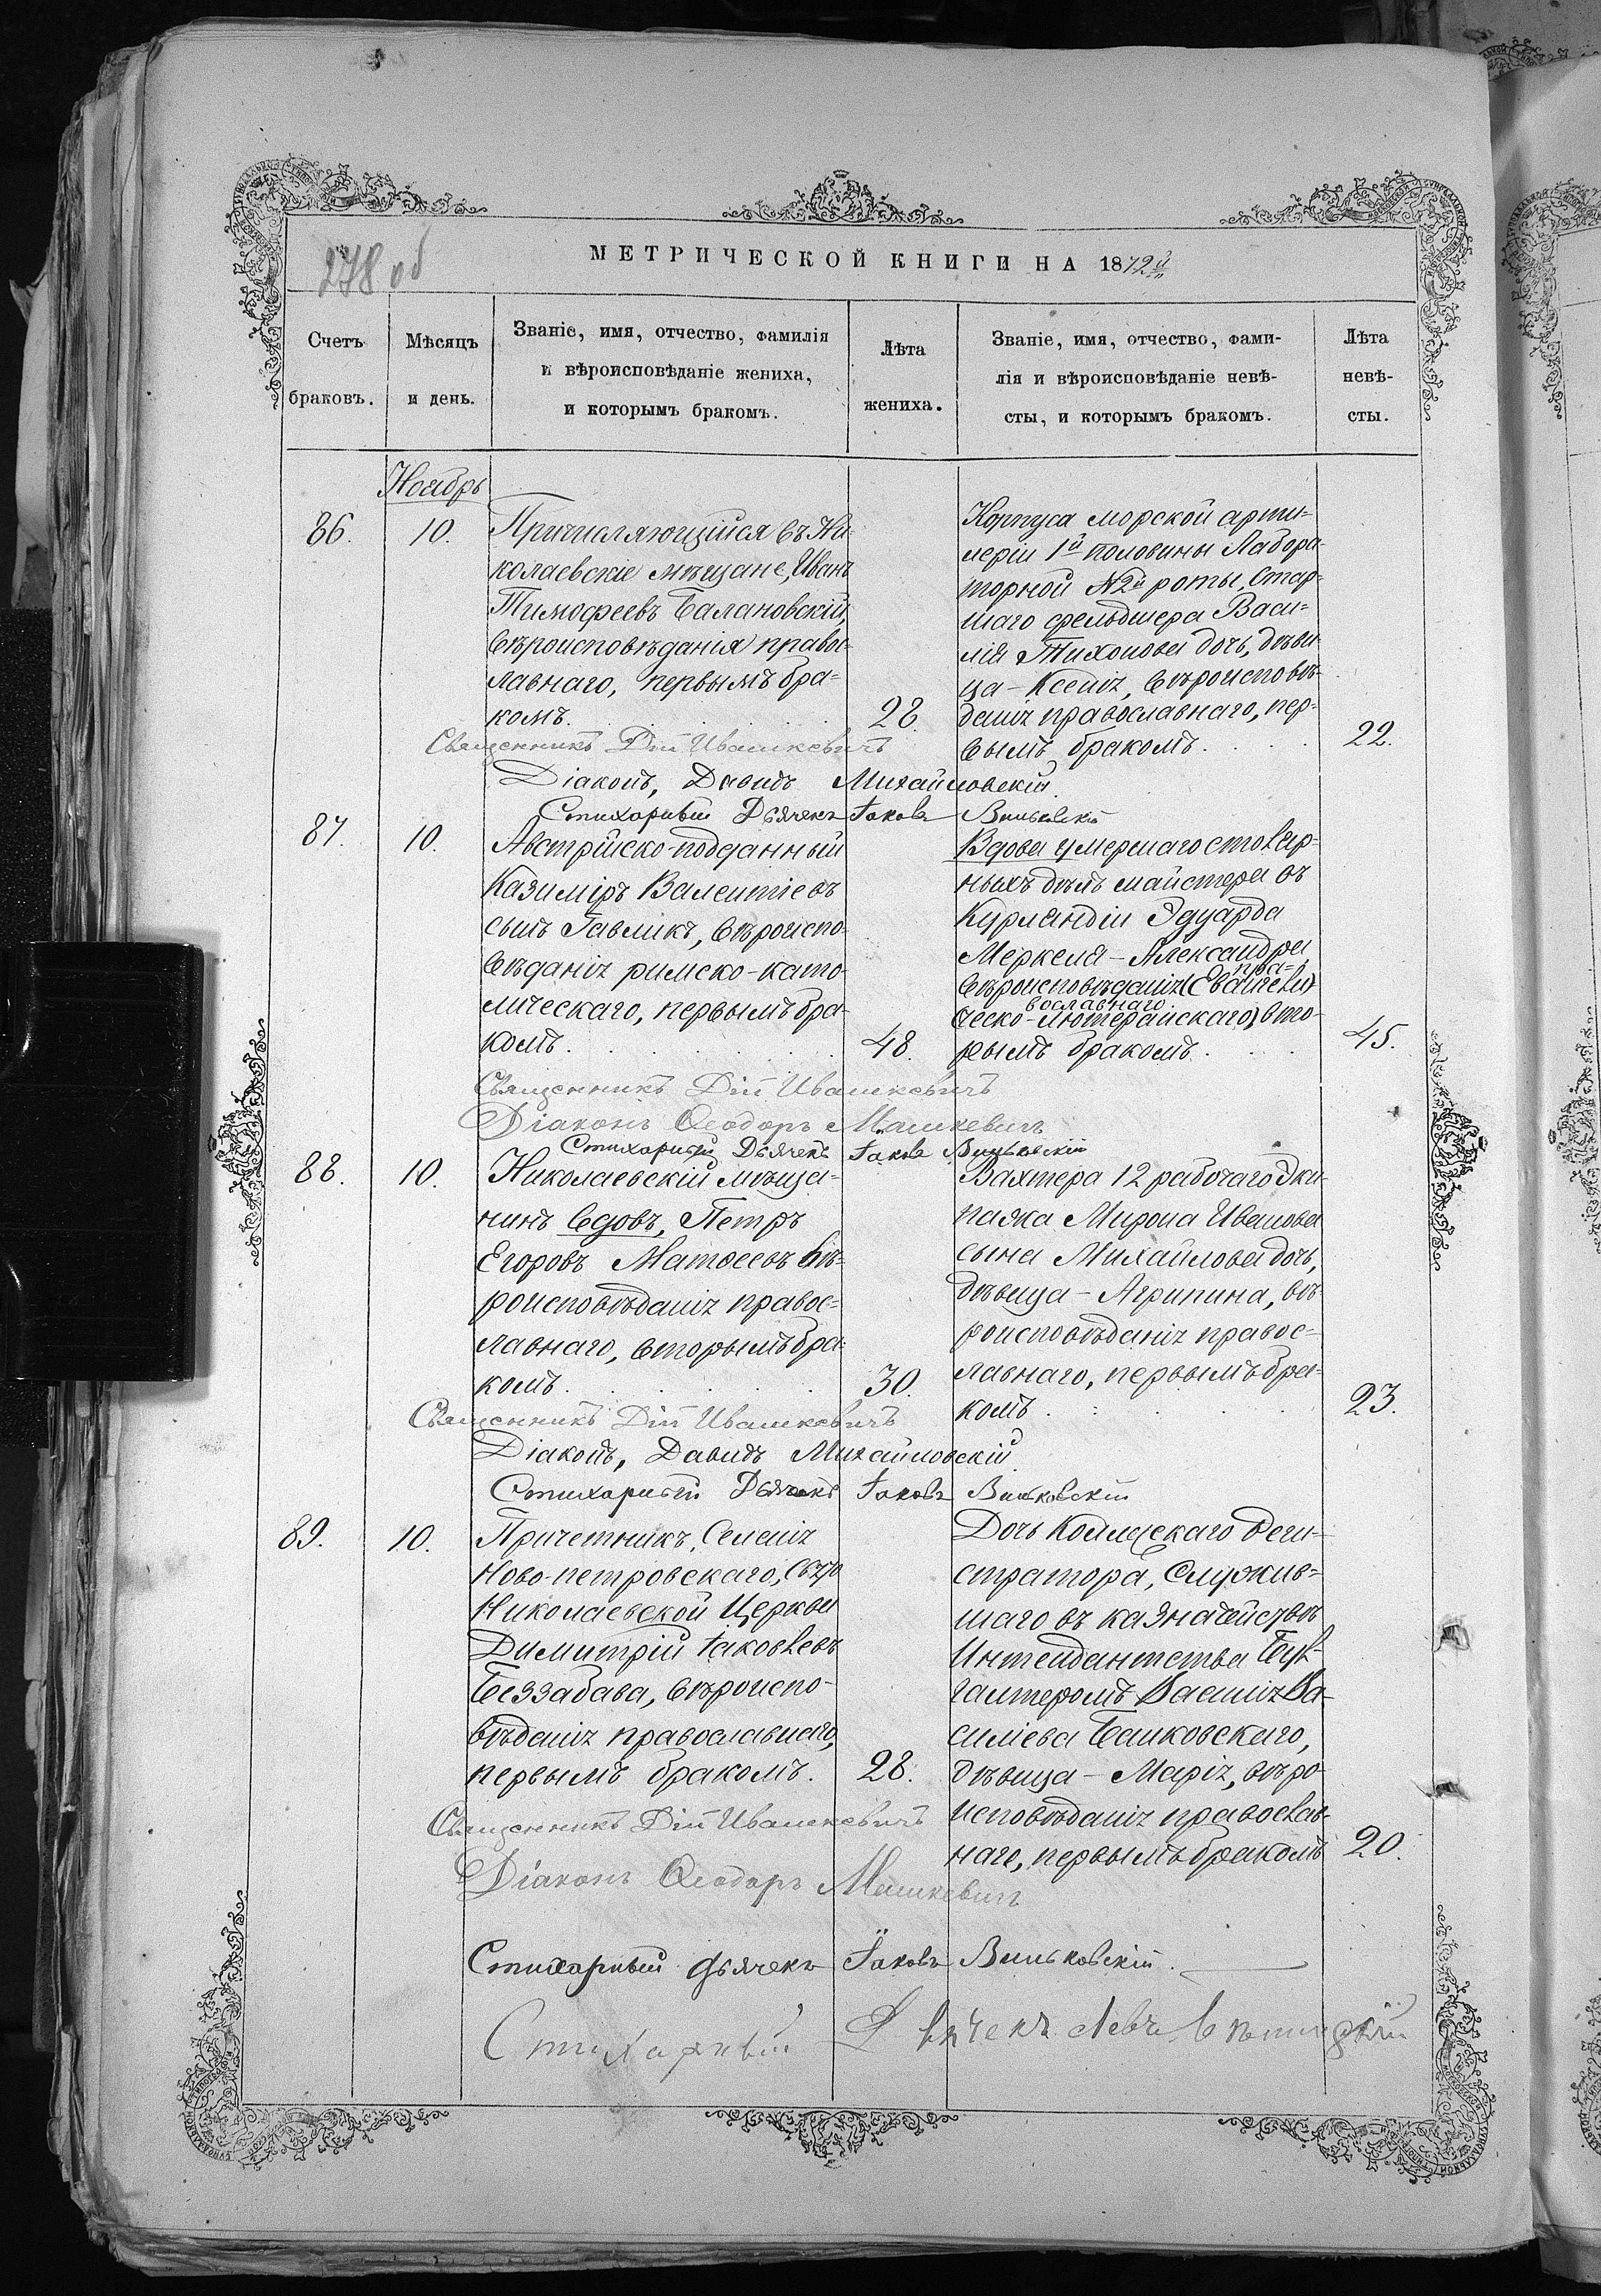 278 об
МЕТРИЧЕСКОЙ КНИГИ НА 1872й
Счетъ
браковъ.
Мѣсяцъ
и день.
Званіе, имя, отчество, фамилія
и вѣроисповѣданіе жениха,
и которымъ бракомъ.
Лѣта
жениха.
Званіе, имя, отчество, фами-
лія и вѣроисповѣданіе невѣ-
сты, и которымъ бракомъ.
Лѣта
невѣ-
сты.
Ноябрь
86. 10.
Причисляющийся въ Ни-
колаевскіе мѣщане, Иванъ
Тимофеевъ Балановскій,
вѣроисповѣданія правос-
лавнаго, первымъ бра-
комъ. 28.
Корпуса морской арти-
леріи 1й половины Лабора-
торной №2й роты, Стар-
шаго фельдшера Васи-
лія Тихонова дочь, дѣви-
ца - Ксенія, вѣроисповѣ-
данія православнаго, пер-
вымъ бракомъ. 22.
Священникъ Дій Ивашкевичъ
Діаконъ, Давидъ Михайловскій
Стихарный Дьячекъ Іаковъ Виньковскій
87. 10.
Австрійско-подданный
Казиміръ Валентіевъ
сынъ Гавликъ, вѣроиспо-
вѣданія римско-като-
лическаго, первымъ бра-
комъ. 48.
Вдова умершаго столяр-
ныхъ дѣлъ майстера въ
Курляндіи Эдуарда
Меркеля - Александра,
пра-
вѣроисповѣданія (Евангели-
вославнаго
ческо-лютеранскаго) вто-
рымъ бракомъ. 45.
Священникъ Дій Ивашкевичъ
Діаконъ Ѳеодоръ Машкевичъ
Стихарный Дьячекъ Іаковъ Виньковскій
88. 10.
Николаевскій мѣща-
нинъ вдовъ, Петръ
Егоровъ Матвеевъ вѣ-
роисповѣданія правос-
лавнаго, вторымъ бра-
комъ. 30.
Вахтера 12 рабочаго Эки-
пажа Мирона Иванова
сына Михайлова дочь,
дѣвица - Агрипина, вѣ-
роисповѣданія правос-
лавнаго, первымъ бра-
комъ. 23.
Священникъ Дій Ивашкевичъ
Діаконъ, Давидъ Михайловскій
Стихарный Дьячекъ Іаковъ Виньковскій
89. 10.
Причетникъ, Селенія
Ново-петровскаго, Свято
Николаевской Церкви
Димитрій Іаковлевъ
Беззабава, вѣроиспо-
вѣданія православнаго,
первымъ бракомъ. 28.
Дочь Коллежскаго Реги-
стратора, Служив-
шаго въ казначействѣ
Интендантства Бух-
галтеромъ Василія Ва-
силіева Банковскаго,
дѣвица - Марія, вѣро-
исповѣданія православ-
наго, первымъ бракомъ 20.
Священникъ Дій Ивашкевичъ
Діаконъ Ѳеодоръ Машкевичъ
Стихарный дьячекъ Іаковъ Виньковскій.
Стихарный Дьячекъ Левъ